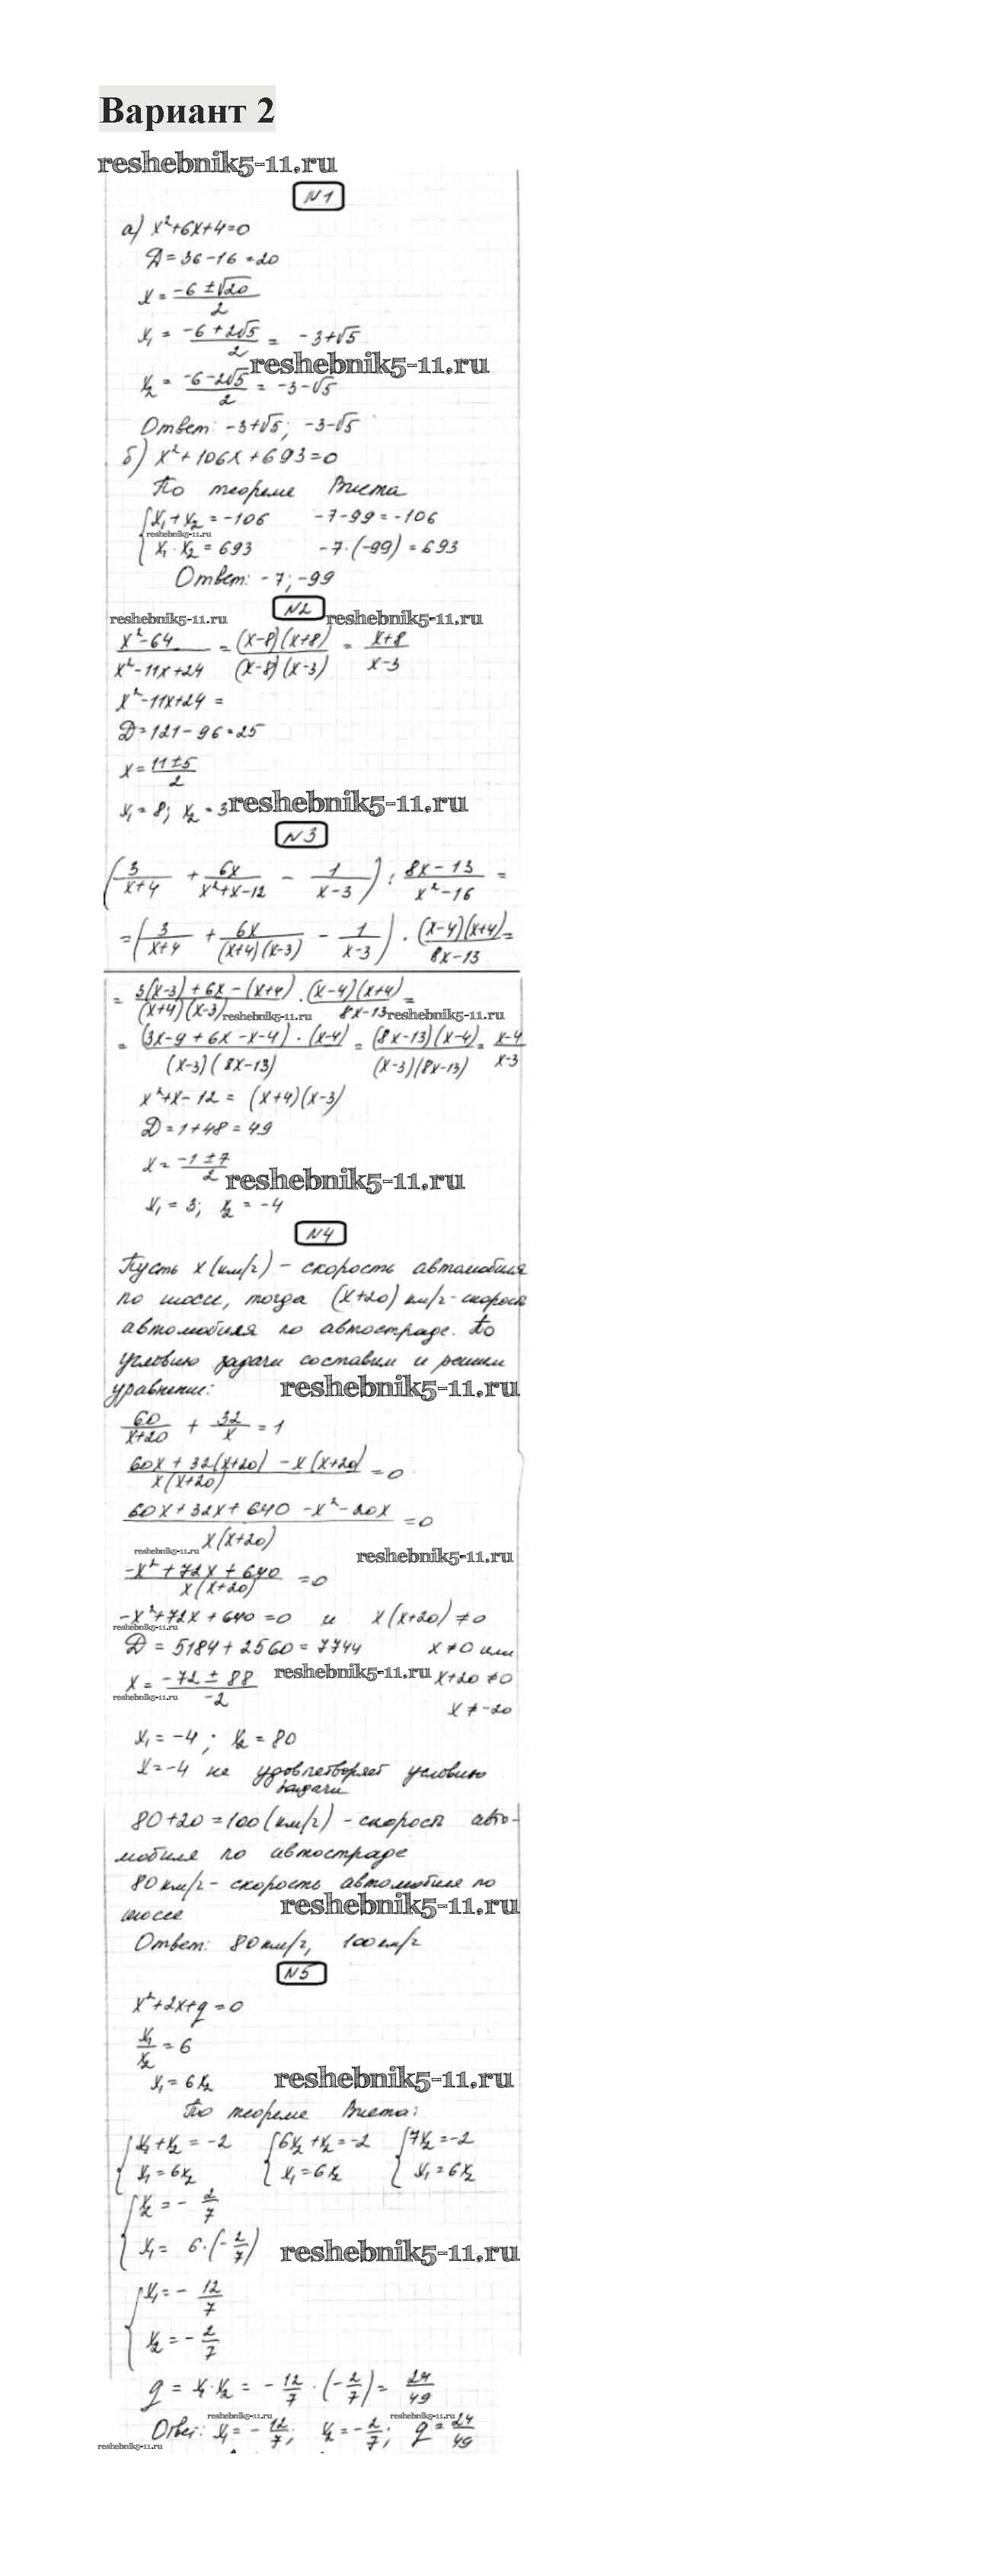 Вариант 2
reshebnik5-11.ru
N1
а) x²+6x+4=0
Д=36-16=20
x = (-6 ± √20)/2
x₁ = (-6+2√5)/2 = -3+√5
reshebnik5-11.ru
x₂ = (-6-2√5)/2 = -3-√5
Ответ: -3+√5; -3-√5
б) x²+106x+693=0
По теореме Виета
{x₁+x₂=-106 -7-99=-106
reshebnik5-11.ru
x₁·x₂=693 -7·(-99)=693
Ответ: -7; -99
N2
reshebnik5-11.ru reshebnik5-11.ru
(x²-64)/(x²-11x+24) = ((x-8)(x+8))/((x-8)(x-3)) = (x+8)/(x-3)
x²-11x+24=
Д=121-96=25
x = (11±5)/2
x₁=8; x₂=3
reshebnik5-11.ru
N3
(3/(x+4) + 6x/(x²+x-12) - 1/(x-3)) : (8x-13)/(x²-16) =
=(3/(x+4) + 6x/((x+4)(x-3)) - 1/(x-3)) · ((x-4)(x+4))/(8x-13) =
= (3(x-3)+6x-(x+4))/((x+4)(x-3)) · ((x-4)(x+4))/(8x-13) =
reshebnik5-11.ru reshebnik5-11.ru
= ((3x-9+6x-x-4)·(x-4))/((x-3)(8x-13)) = ((8x-13)(x-4))/((x-3)(8x-13)) = (x-4)/(x-3)
x²+x-12 = (x+4)(x-3)
Д=1+48=49
x = (-1±7)/2
reshebnik5-11.ru
x₁=3; x₂=-4
N4
Пусть x(км/ч) - скорость автомобиля
по шоссе, тогда (x+20) км/ч - скорость
автомобиля по автостраде. По
условию задачи составим и решим
уравнение:
reshebnik5-11.ru
60/(x+20) + 32/x = 1
(60x+32(x+20)-x(x+20))/(x(x+20)) =0
(60x+32x+640-x²-20x)/(x(x+20)) =0
reshebnik5-11.ru reshebnik5-11.ru
(-x²+72x+640)/(x(x+20)) =0
-x²+72x+640=0 и x(x+20)≠0
reshebnik5-11.ru
Д = 5184+2560=7744 x≠0 или
x = (-72±88)/-2 reshebnik5-11.ru x+20≠0
reshebnik5-11.ru
x≠-20
x₁=-4; x₂=80
x=-4 не удовлетворяет условию
задачи
80+20=100(км/ч) - скорость авто-
мобиля по автостраде
80км/ч - скорость автомобиля по
шоссе
reshebnik5-11.ru
Ответ: 80км/ч, 100км/ч
N5
x²+2x+q=0
x₁/x₂ = 6
x₁=6x₂
reshebnik5-11.ru
По теореме Виета:
{x₁+x₂=-2 {6x₂+x₂=-2 {7x₂=-2
x₁=6x₂ x₁=6x₂ x₁=6x₂
{x₂=-2/7
x₁= 6·(-2/7)
reshebnik5-11.ru
{x₁=-12/7
x₂=-2/7
q = x₁·x₂ = -12/7·(-2/7) = 24/49
reshebnik5-11.ru reshebnik5-11.ru
Ответ: x₁=-12/7; x₂=-2/7; q=24/49
reshebnik5-11.ru